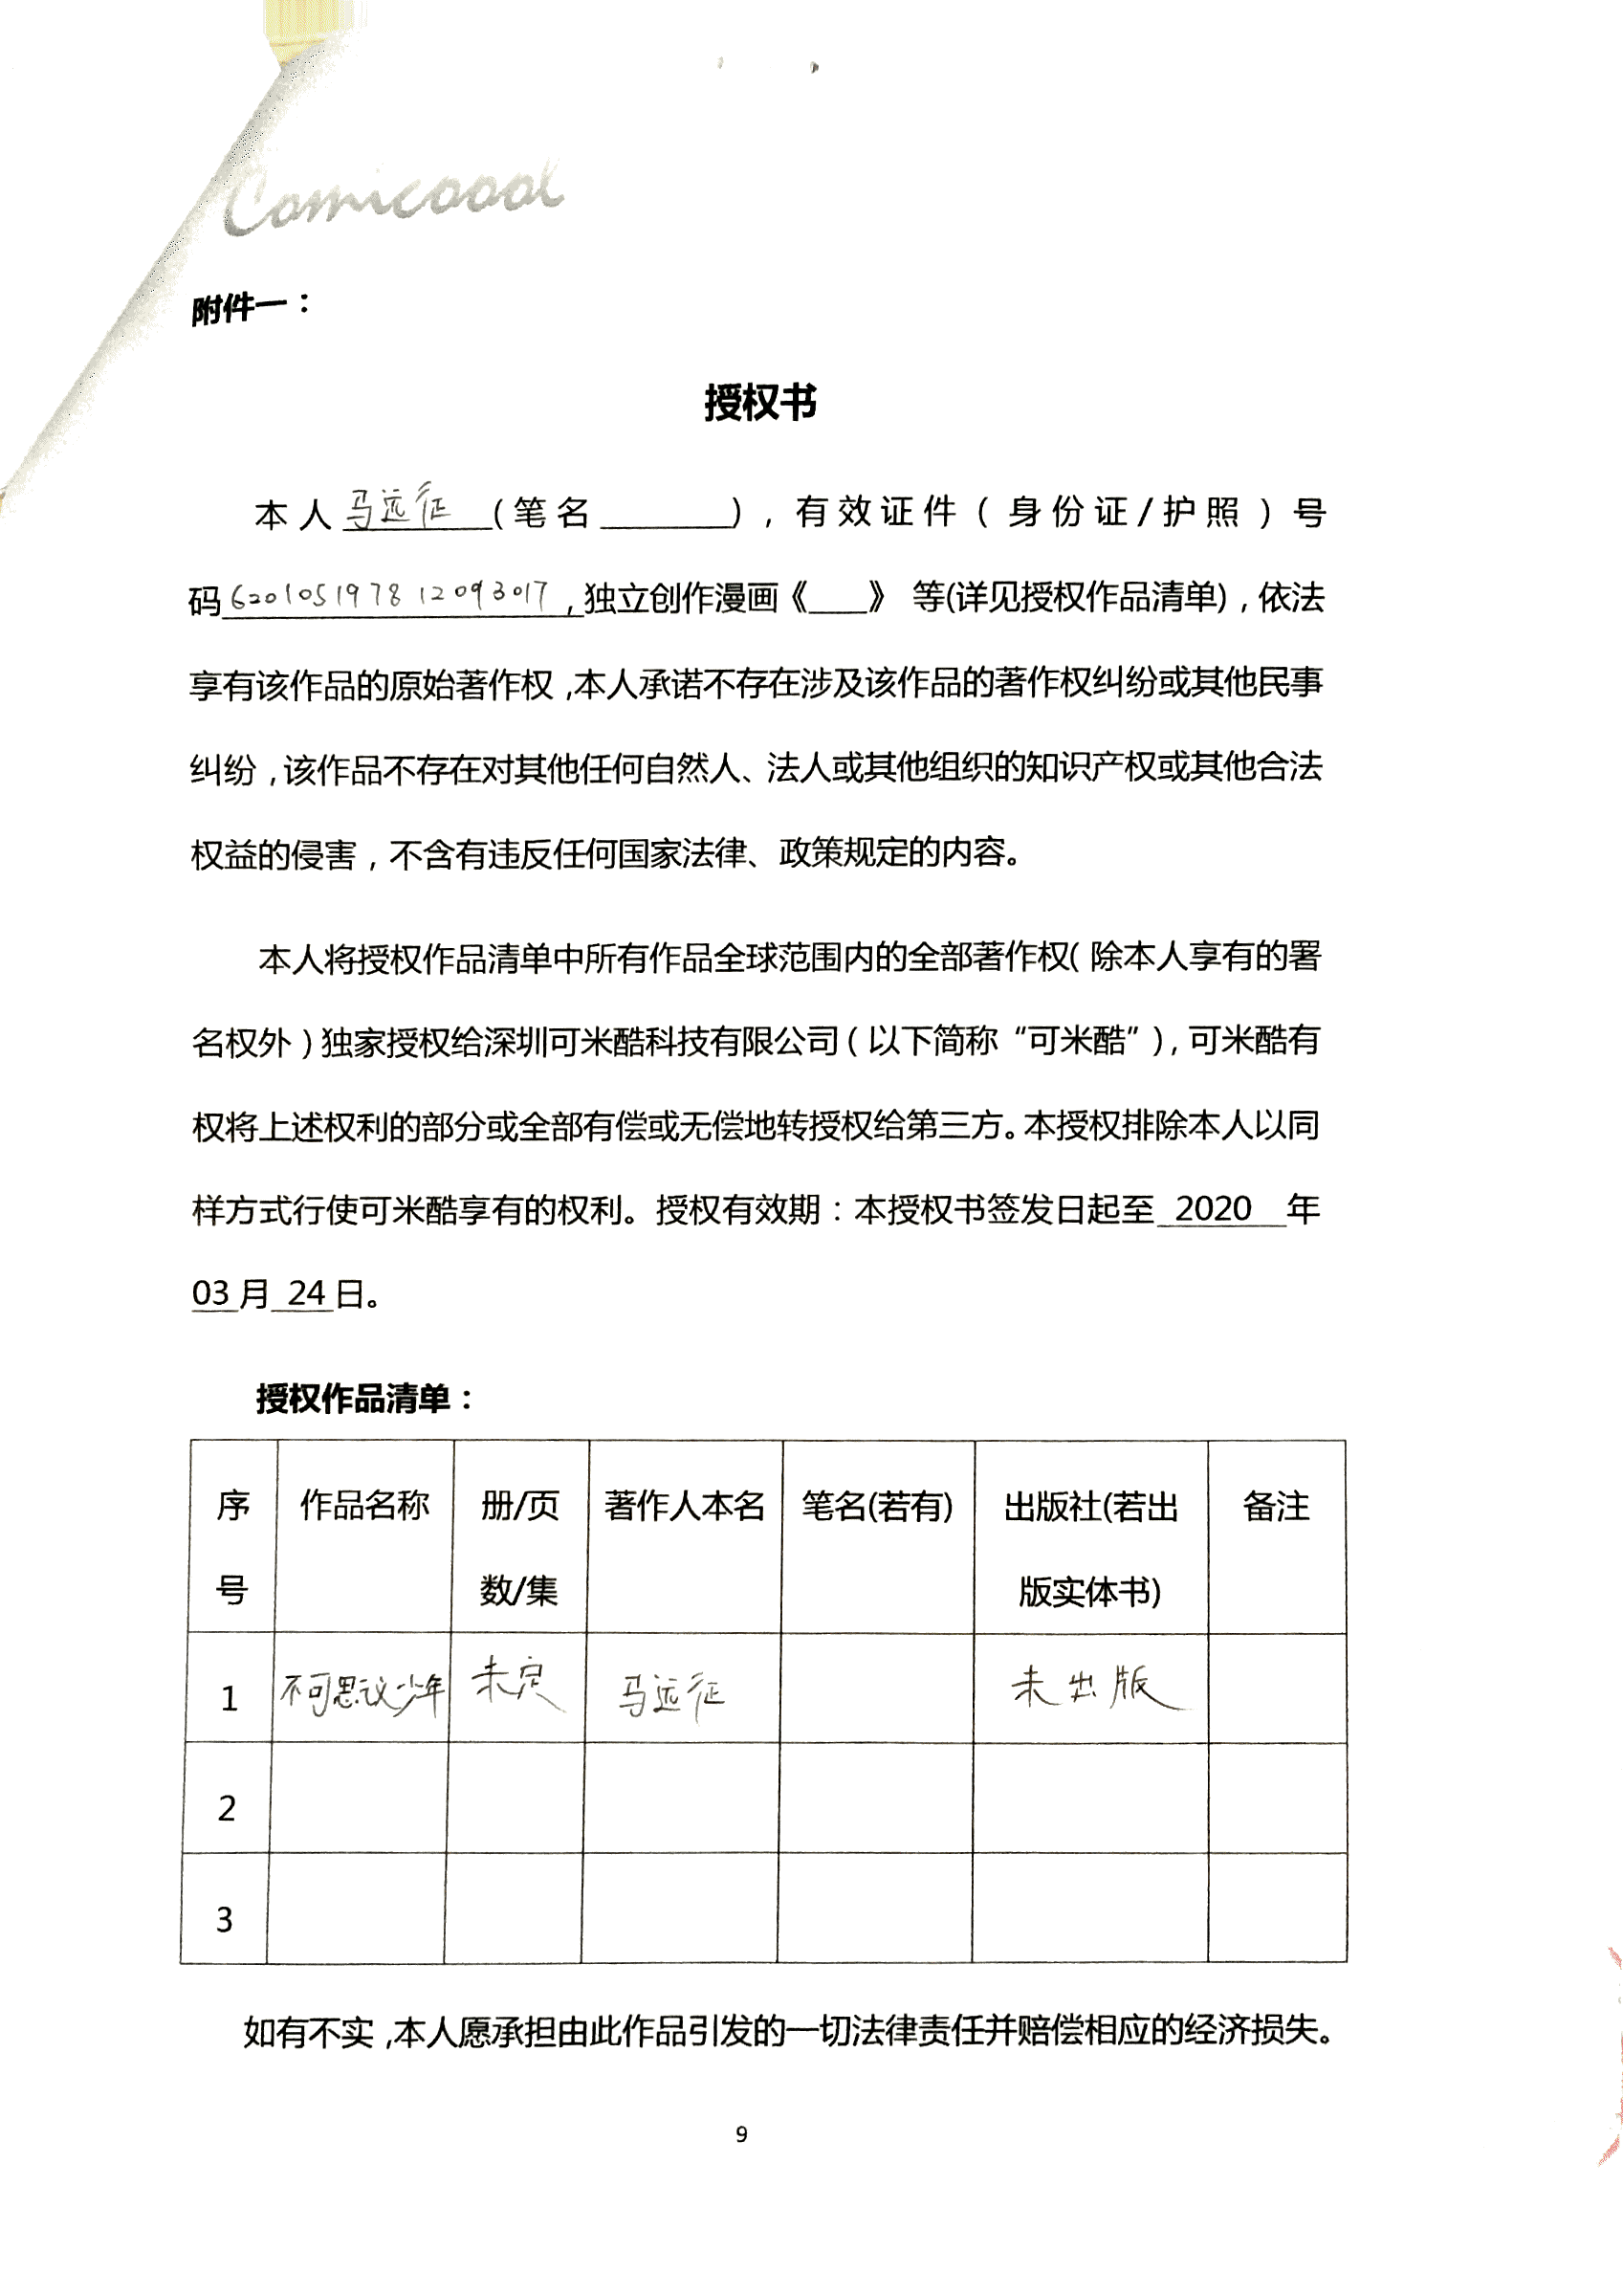 Comicoool
附件一：
授权书
本人 马远征 (笔名 ______)，有效证件（身份证/护照）号
码 620105197812093017 ，独立创作漫画《___》 等(详见授权作品清单)，依法
享有该作品的原始著作权，本人承诺不存在涉及该作品的著作权纠纷或其他民事
纠纷，该作品不存在对其他任何自然人、法人或其他组织的知识产权或其他合法
权益的侵害，不含有违反任何国家法律、政策规定的内容。
本人将授权作品清单中所有作品全球范围内的全部著作权（除本人享有的署
名权外）独家授权给深圳可米酷科技有限公司（以下简称“可米酷”），可米酷有
权将上述权利的部分或全部有偿或无偿地转授权给第三方。本授权排除本人以同
样方式行使可米酷享有的权利。授权有效期：本授权书签发日起至 2020 年
03 月 24 日。
授权作品清单：
序号 作品名称 册/页数/集 著作人本名 笔名(若有) 出版社(若出版实体书) 备注
1 不可思议少年 未定 马远征 未出版
2
3
如有不实，本人愿承担由此作品引发的一切法律责任并赔偿相应的经济损失。
9